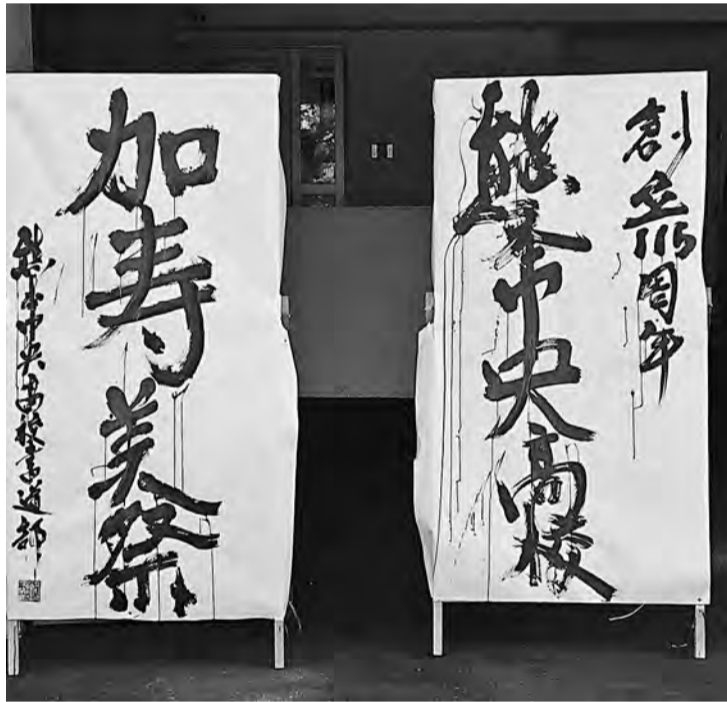 創立115周年
熊本中央高校
加寿美祭
熊本中央高校書道部